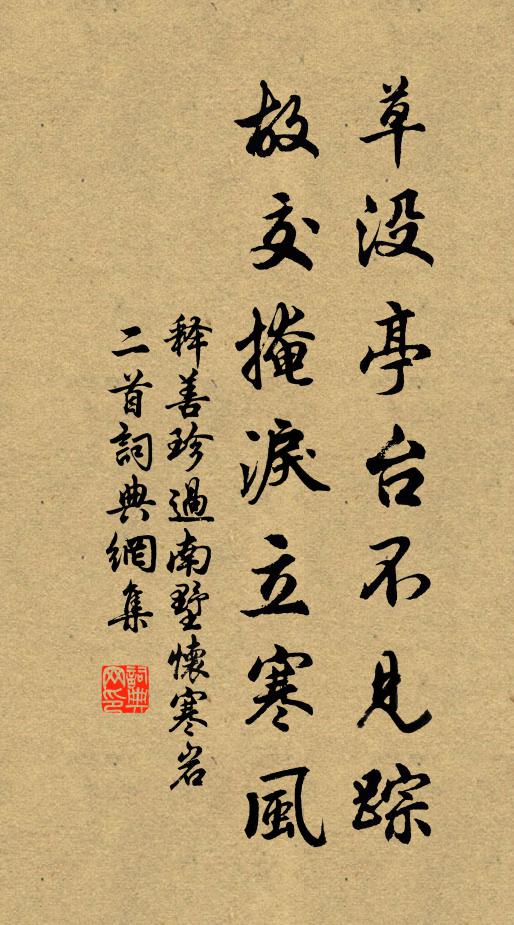 草没亭台不見踪
故交掩淚立寒風
釋善珍過南墅懷寒岩
二首詞典網集
詞典
网印